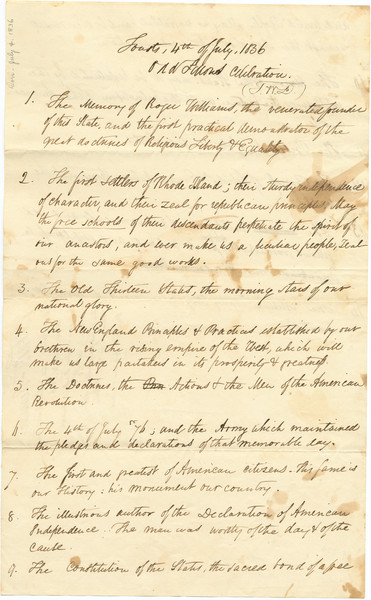 Toasts, 4th of July, 1836
Odd Fellows Celebration.
Com. July 4. 1836
1. The Memory of Roger Williams, the venerated founder
of this State, and the first practical demonstrator of the
great doctrines of Religious Liberty & Equality.
2. The first settlers of Rhode Island; their sturdy independence
of character, and their zeal for republican principles. May
the free schools of their descendants perpetuate the spirit of
our ancestors, and ever make us a peculiar people, zeal
ous for the same good works.
3. The Old Thirteen States, the morning stars of our
national glory.
4. The New England Principles & Practices established by our
brethren in the rising empire of the West, which will
make us large partakers in its prosperity & greatness.
5. The Doctrines, the Actions & the Men of the American
Revolution.
6. The 4th of July '76; and the Army which maintained
the pledges and declarations of that memorable day.
7. The first and greatest of American citizens. His fame is
our History: his monument our country.
8. The illustrious author of the Declaration of American
Independence. The man was worthy of the day & of the
cause.
9. The Constitution of the States, the sacred bond of a free